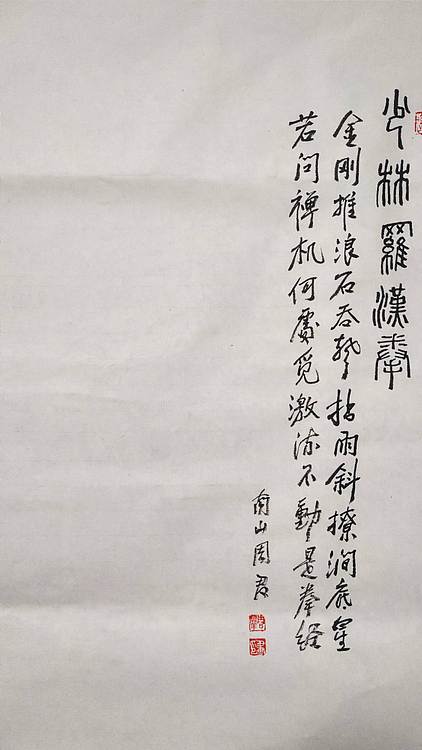 少林羅漢拳
金刚推浪石吞聲指雨斜撩涧底星
若问禅机何處觅激流不動是拳经
南山周君